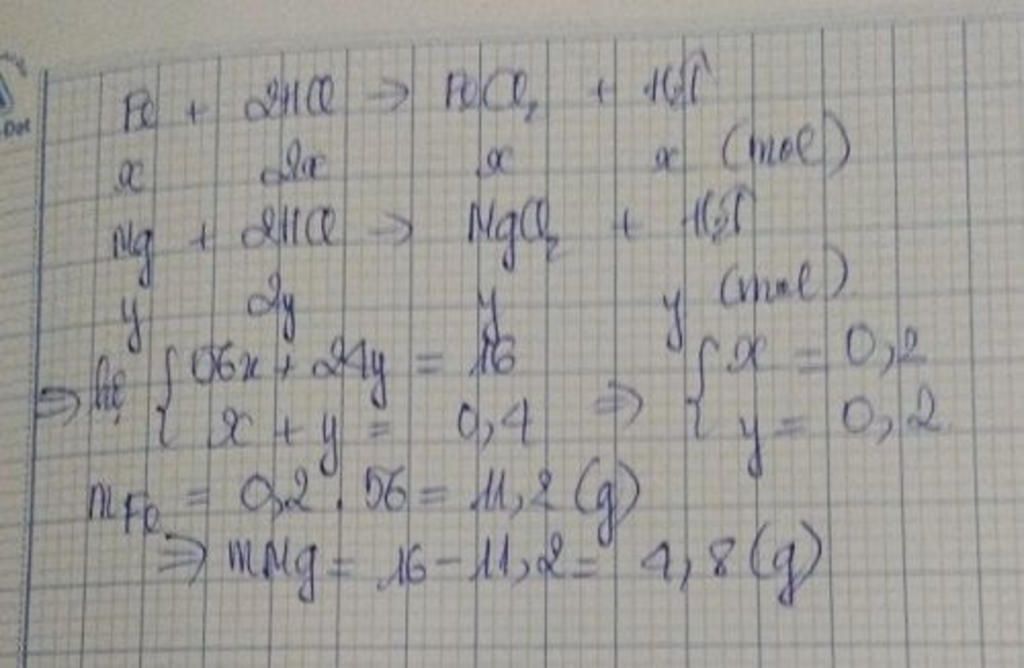 Fe + 2HCl → FeCl₂ + H₂↑
x 2x x x (mol)
Mg + 2HCl → MgCl₂ + H₂↑
y 2y y y (mol)
⇒ hệ { 56x + 24y = 16 ⇒ { x = 0,2
{ x + y = 0,4 { y = 0,2
mFe = 0,2 . 56 = 11,2 (g)
⇒ mMg = 16 - 11,2 = 4,8 (g)